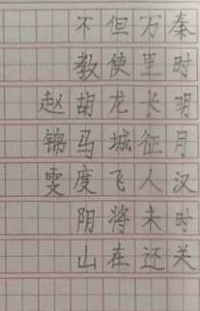 秦时明月汉时关
万里长征人未还
但使龙城飞将在
不教胡马度阴山
赵锦雯